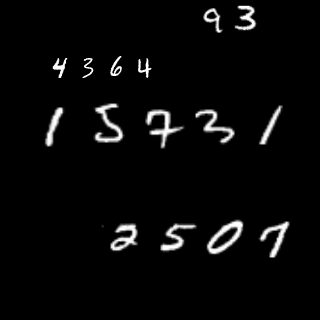 93
4364
15731
2507